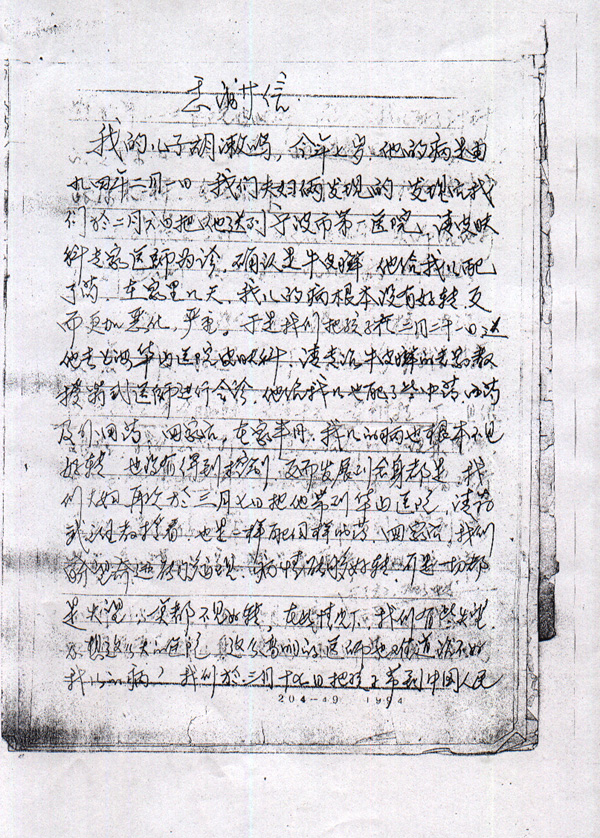 感谢信
我的儿子胡 鸣,今年七岁.他的病是由
九四年二月一日 我们夫妇俩发现的,发现后我
们於二月六日把他送到宁波市第一医院,请皮肤
科专家医师为诊,确认是牛皮癣,他给我儿配
了药.在家里几天,我儿的病根本没有好转反
而更加恶化,严重。于是我们把孩子在二月二十一日送
他去上海华山医院皮肤科,请专治牛皮癣的专家教
授 医师进行会诊,他给我儿也配了些中药,西药
及外用药 回家后,在家半月,我儿的病也根本不见
好转 也没有得到控制,反而发展到全身都是,我
们夫妇再次於三月七日把他带到华山医院,请
教授看,也是一样配同样的药,回家后,我们
希望奇迹般的出现,病情能够好转,可是一切都
是失望,一莫都不见好转,在此情况下,我们有些失望,
不想这么大的医院,这么高明的医师 难道治不好
我儿的病?我们於三月十七日把孩子带到中国人民
204-49 1994